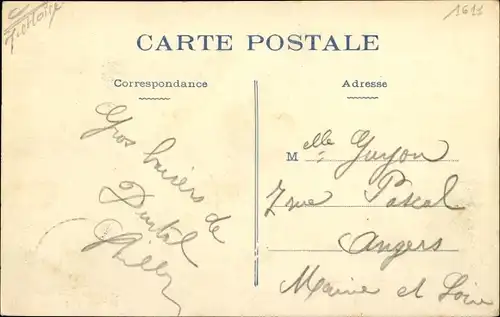 1611
CARTE POSTALE
Correspondance
Adresse
Gros baisers de
Durtal
Melle Guyon
7 rue Pascal
Angers
Maine et Loire